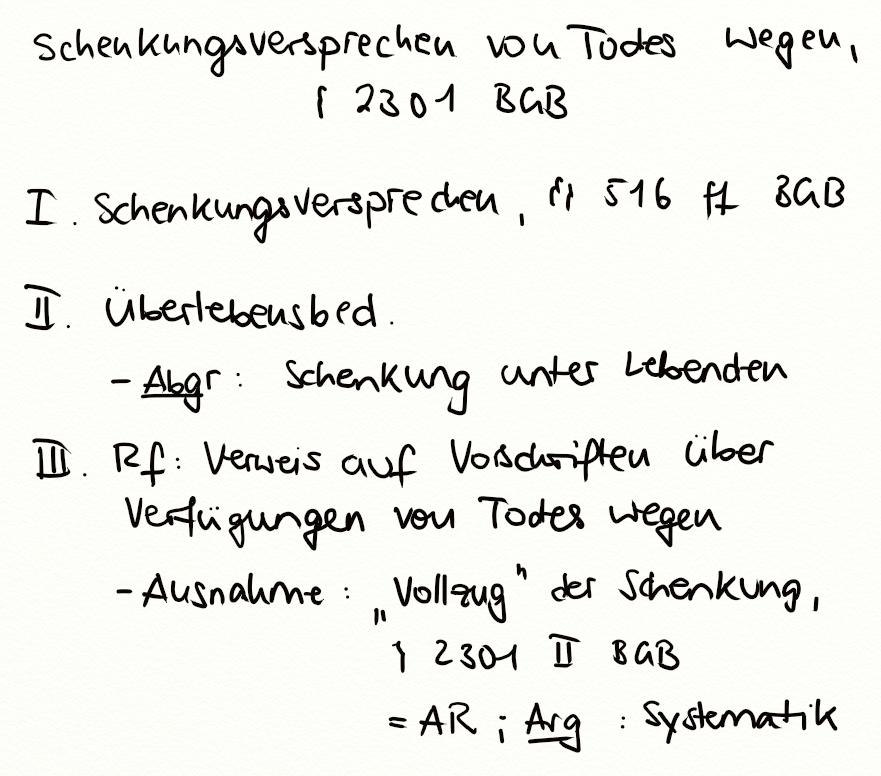 Schenkungsversprechen von Todes wegen,
§ 2301 BGB
I. Schenkungsversprechen, §§ 516 ff BGB
II. Überlebensbed.
- Abgr: Schenkung unter Lebenden
III. Rf: Verweis auf Vorschriften über
Verfügungen von Todes wegen
- Ausnahme: „Vollzug" der Schenkung,
§ 2301 II BGB
= AR; Arg: Systematik